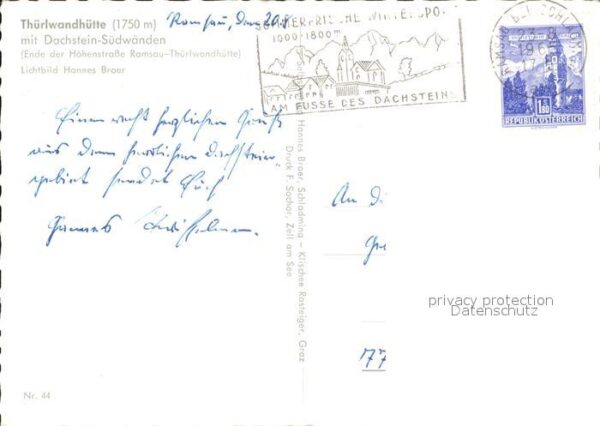 Thürlwandhütte (1750 m)
mit Dachstein-Südwänden
(Ende der Höhenstraße Ramsau–Thürlwandhütte)
Lichtbild Hannes Broer
Ramsau, den
1000-1800m
AM FUSSE DES DACHSTEIN
1.80
REPUBLIK ÖSTERREICH
Einen recht herzlichen Gruß
aus dem herrlichen Dachstein-
gebiet sendet Euch
Hannes Broer, Schladming – Klischee Rasteiger, Graz
Druck F. Sochor, Zell am See
An di
77
privacy protection
Datenschutz
Nr. 44